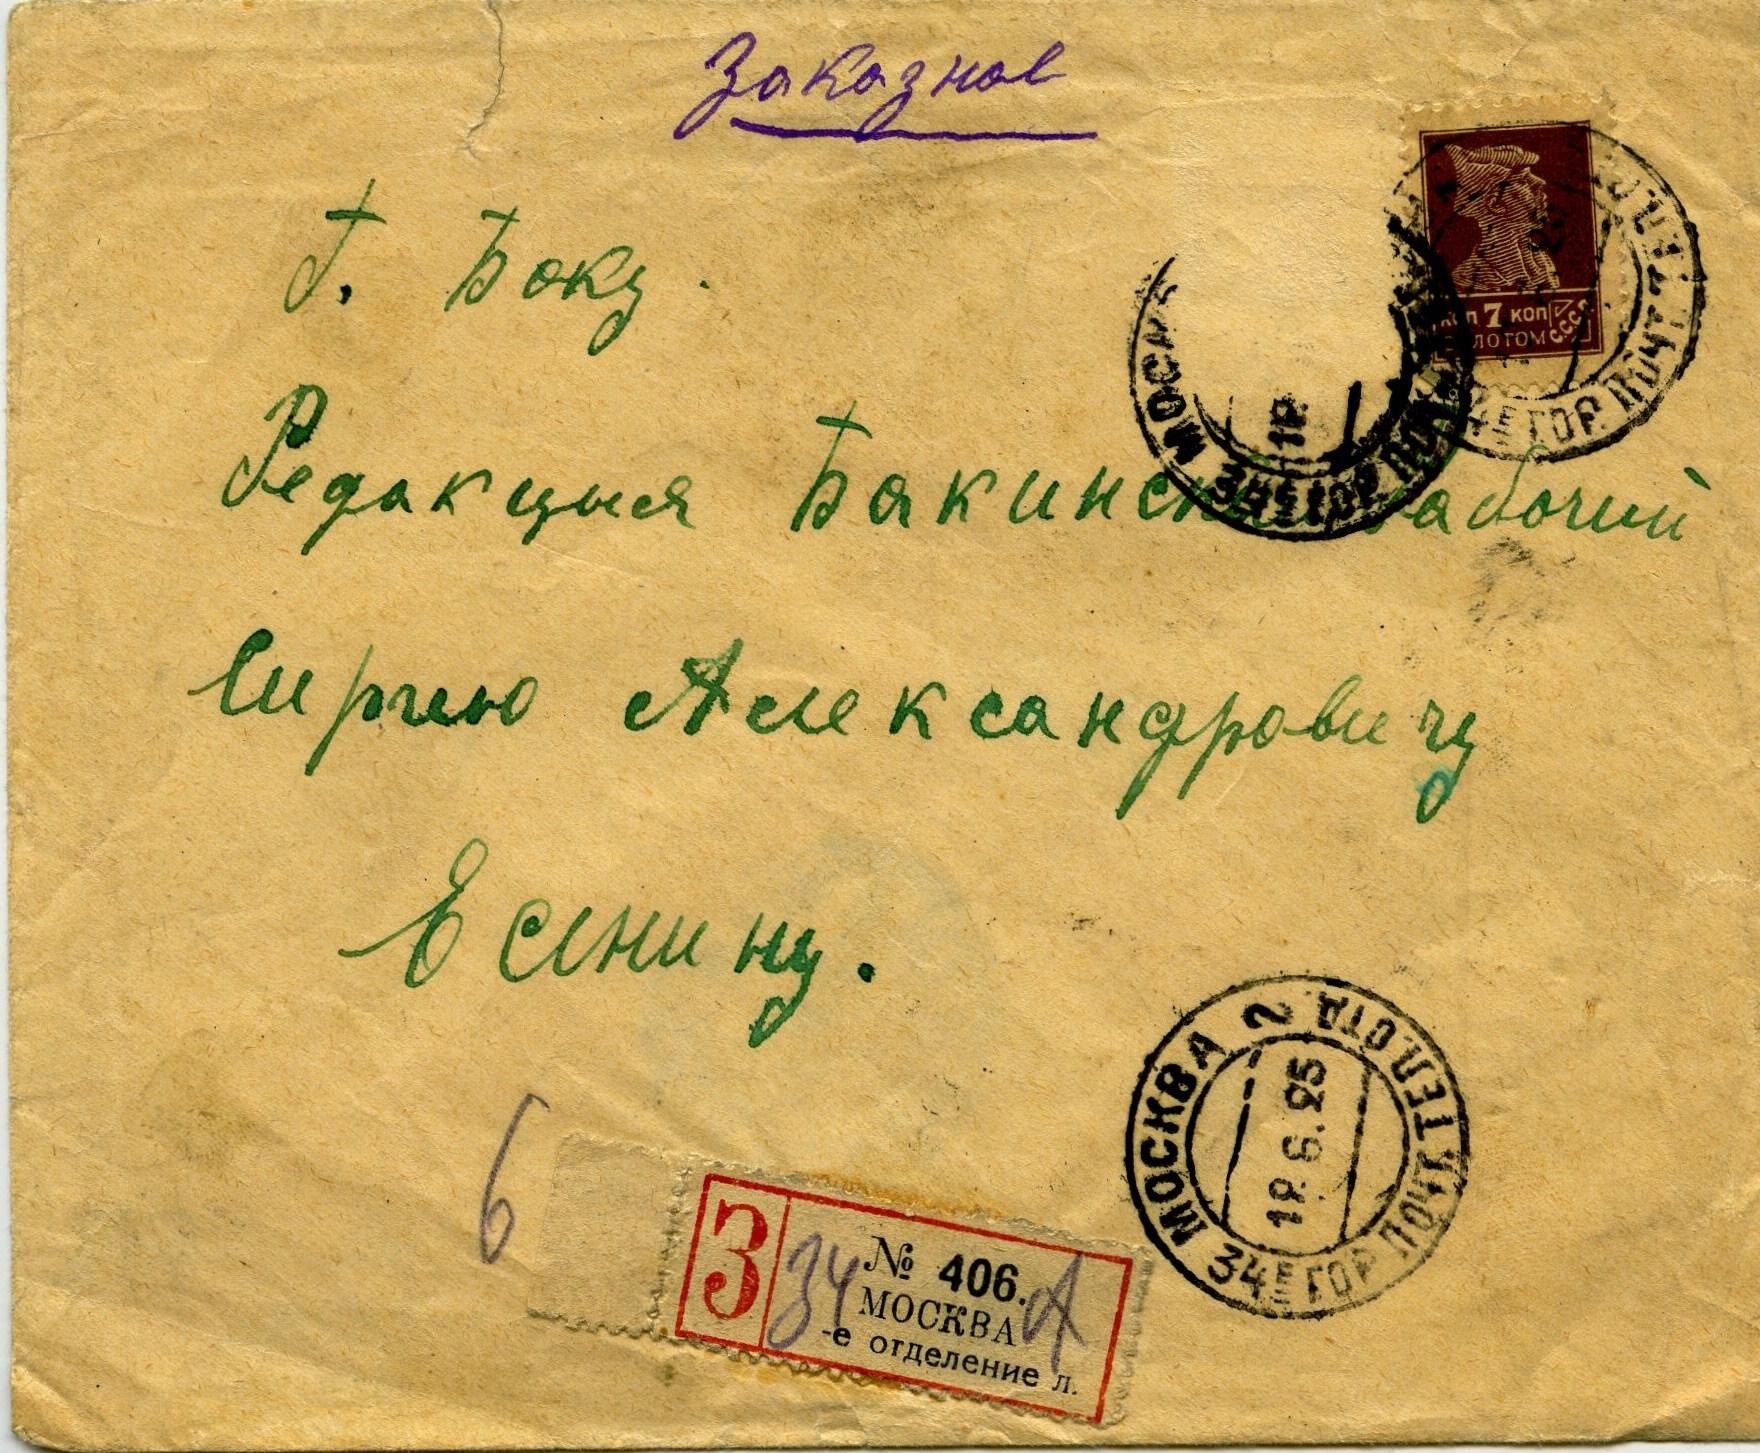 Заказное
Г. Баку.
Редакцыя Бакински рабочий
Сиргею Александровичу
Есенину.
КОП 7 КОП
ЗОЛОТОМ СССР
МОСКВА
34Е ГОР. ПОЧТ
19
34Е ГОР. ПОЧТ. ТЕЛ.
МОСКВА 2 34Е ГОР. ПОЧТ ТЕЛ ОТД
19.6.25
6
З
34 № 406. А
МОСКВА
-е отделение л.